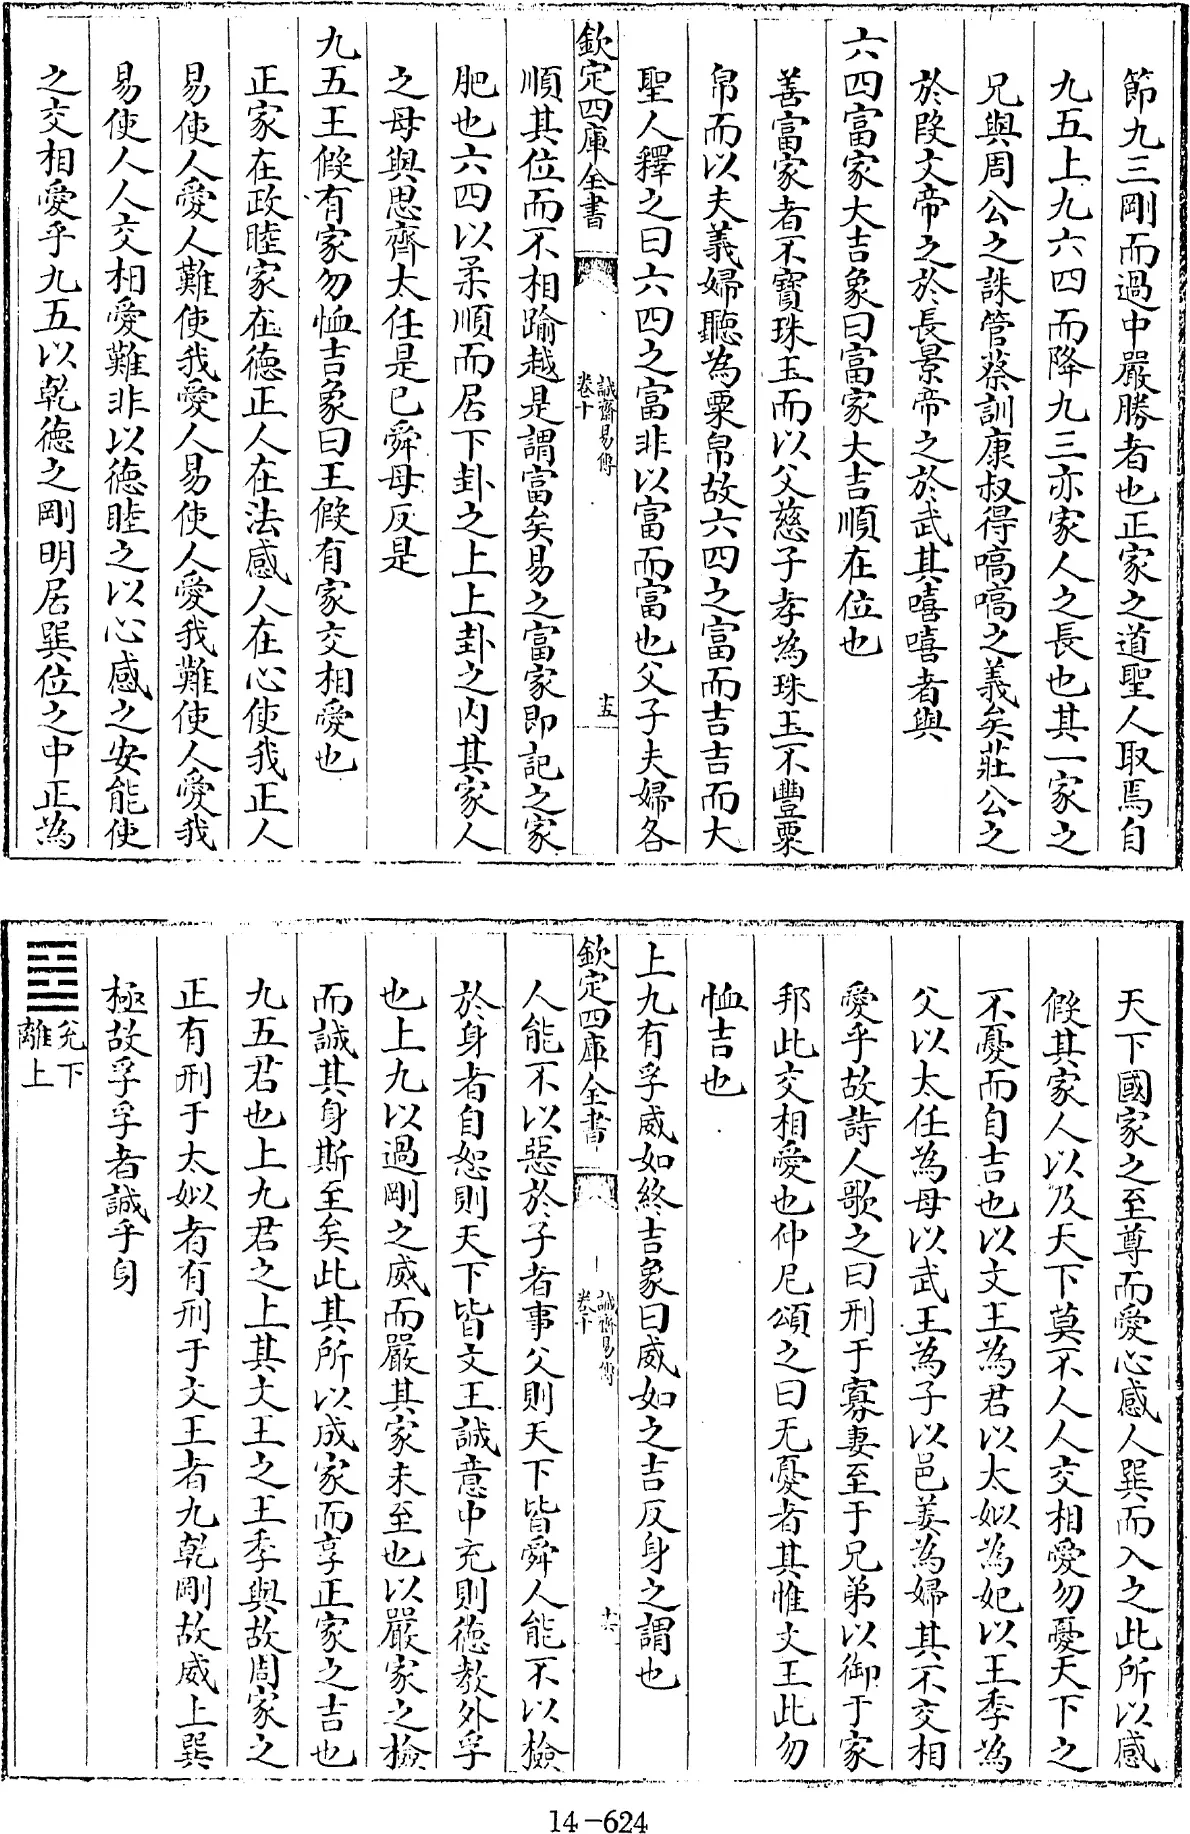 節九三剛而過中嚴勝者也正家之道聖人取焉自
九五上九六四而降九三亦家人之長也其一家之
兄與周公之誅管蔡訓康叔得嗃嗃之義矣莊公之
於段文帝之於長景帝之於武其嘻嘻者與
六四富家大吉象曰富家大吉順在位也
善富家者不寶珠玉而以父慈子孝為珠玉不豐粟
帛而以夫義婦聽為粟帛故六四之富而吉吉而大
聖人釋之曰六四之富非以富而富也父子夫婦各
欽定四庫全書
誠齋易傳
卷十
十五
順其位而不相踰越是謂富矣易之富家即記之家
肥也六四以柔順而居下卦之上上卦之内其家人
之母與思齊太任是已舜母反是
九五王假有家勿恤吉象曰王假有家交相愛也
正家在政睦家在德正人在法感人在心使我正人
易使人愛人難使我愛人易使人愛我難使人愛我
易使人人交相愛難非以德睦之以心感之安能使
之交相愛乎九五以乾德之剛明居巽位之中正為
天下國家之至尊而愛心感人巽而入之此所以感
假其家人以及天下莫不人人交相愛勿憂天下之
不憂而自吉也以文王為君以太姒為妃以王季為
父以太任為母以武王為子以邑姜為婦其不交相
愛乎故詩人歌之曰刑于寡妻至于兄弟以御于家
邦此交相愛也仲尼頌之曰无憂者其惟文王此勿
恤吉也
上九有孚威如終吉象曰威如之吉反身之謂也
欽定四庫全書
誠齋易傳
卷十
十六
人能不以惡於子者事父則天下皆舜人能不以檢
於身者自恕則天下皆文王誠意中充則德教外孚
也上九以過剛之威而嚴其家未至也以嚴家之檢
而誠其身斯至矣此其所以成家而享正家之吉也
九五君也上九君之上其文王之王季與故周家之
正有刑于太姒者有刑于文王者九乾剛故威上巽
極故孚孚者誠乎身
䷥兌下
離上
14-624